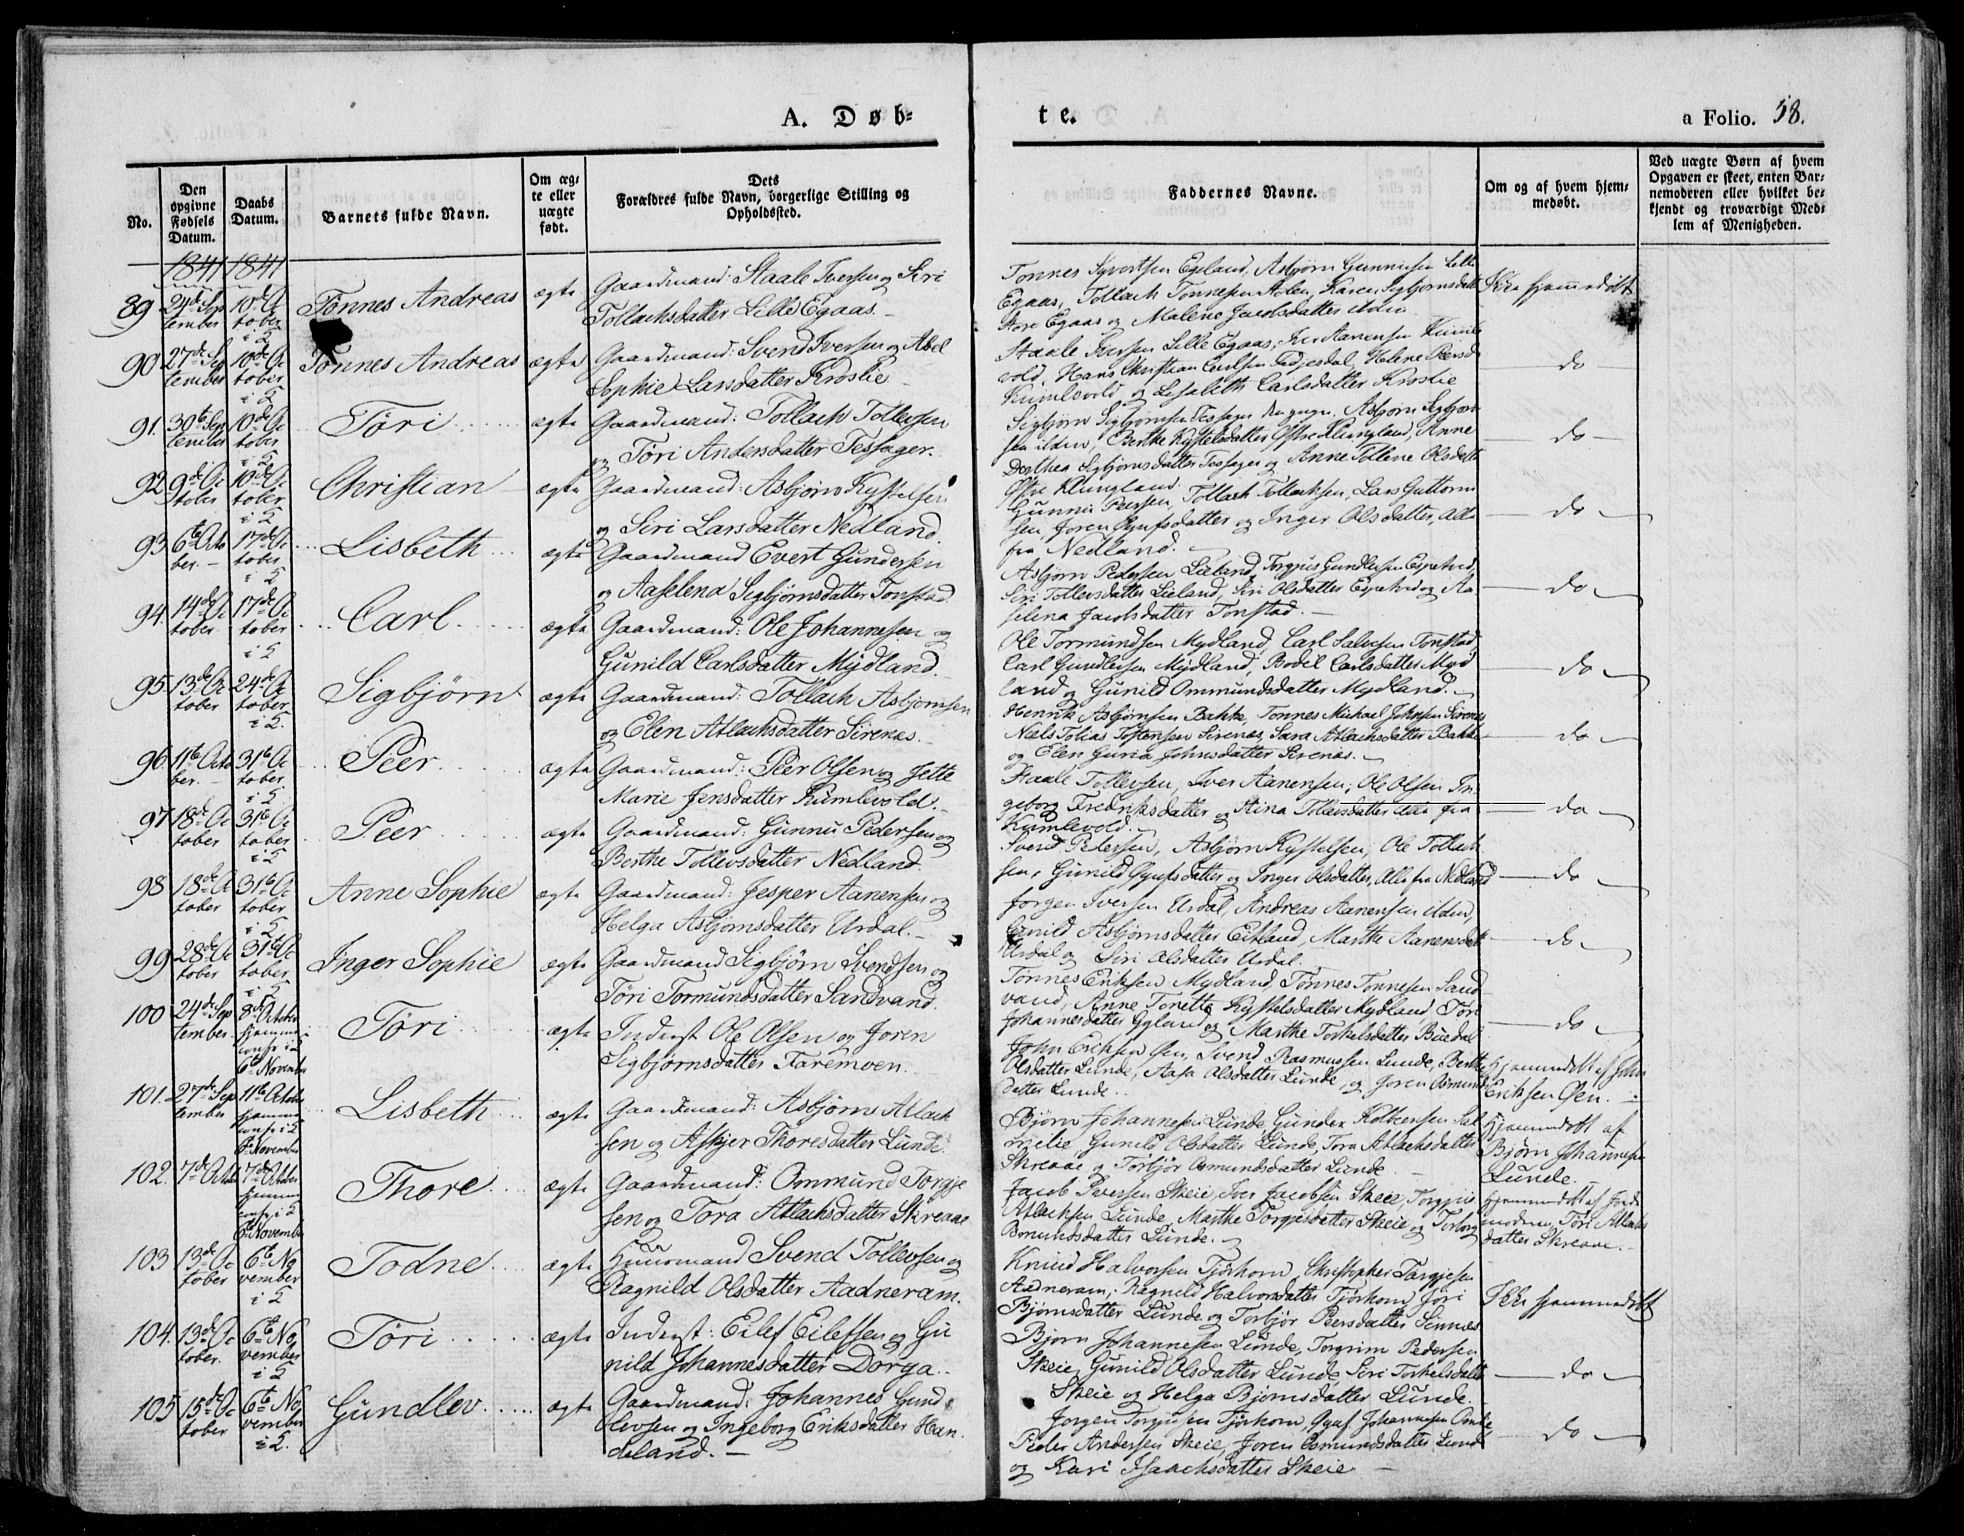 A. Døb=
te.
a Folio. 58.
No.
Den opgivne Fødsels Datum.
Daabs Datum.
Barnets fulde Navn.
Om ægte eller uægte født.
Dets Forældres fulde Navn, borgerlige Stilling og Opholdssted.
Faddernes Navne.
Om og af hvem hjemmedøbt.
Ved uægte Børn af hvem Opgaven er skeet, enten Barnemoderen eller hvilket bekjendt og troværdigt Medlem af Menigheden.
1841 1841
89 24de September 10de October Tønnes Andreas ægte Gaardmand: Staale Iversen og Siri
Tollachsdatter Lille Egaas.
Tønnes Syvertsen Egeland, Asbjørn Gunniesen Lille
Egaas, Tollach Tønnesen, Karen Sigbjørnsdatter
Store Egaas og Malene Jacobsdatter
Ikke hjemmedøbt
90 27de September 10de October i K Tønnes Andreas ægte Gaardmand: Svend Iversen og Abel
Sophie Larsdatter Kroslie
Staale Iversen Lille Egaas, Aanensen Kumle
vold, Hans Christian Carlsen Fidjesdal, Helene Peersd
Kumlevold og Lisabeth Carlsdatter Kroslie
do
91. 30te September 10de October Tøri ægte Gaardmand: Tollach Tollevsen
og Tøri Andersdatter Tessager.
Sigbjørn Sigbjørnsen Tessager, Asbjørn Sigbjørn
sen, Berthe Kystelsdatter Østre Klungland, Anne
Dorthea Sigbjørnsdatter Tessager og Anne Tolline Olsdatter
Østre Klungland.
do
92 9de October 10de October Christian ægte Gaardmand: Asbjørn Kystelsen
og Siri Larsdatter Nedland.
Gunnu Peersen, Tollach Tollachsen, Lars Guttorm
sen, Joren Gyufsdatter og Inger Olsdatter, Alle
fra Nedland.
do
93 6te October. 17de October Lisbeth ægte Gaardmand Evert Gundersen
og Aaselena Sigbjørnsdatter Tonstad.
Asbjørn Pedersen Lieland, Torgjus Gundlevsen Espetveid,
Siri Tollevsdatter Lieland, Siri Olsdatter Espetveid og Aa
selena Jacobsdatter Tonstad.
do
94. 14de October 17de October Carl ægte Gaardmand: Ole Johannesen og
Gunild Carlsdatter Mydland.
Ole Tormundsen Mydland, Carl Salvesen Tonstad,
Carl Gundlevsen Mydland, Bodil Carlsdatter Myd
land og Gunild Ommundsdatter Mydland.
do
95. 13de October 24de October Sigbjørn ægte Gaardmand: Tollach Asbjørnsen
og Elen Atlachsdatter Sirenes.
Henrik Asbjørnsen Bakke, Tønnes Michael Johnsen Sirenes
Niels Tobias Tostensen Sirenes, Sara Atlachsdatter Bakke
og Elen Guria Johnsdatter Sirenes.
do
96. 11te October. 31te October Peer ægte Gaardmand: Peer Olsen og Jette
Marie Jensdatter Kumlevold.
Staale Tollevsen, Iver Aanensen, Ole Olsen In
geborg Fredriksdatter og Stina Tollevsdatter alle fra
Kumlevold.
do
97 18de October 31te October Peer ægte Gaardmand: Gunnu Pedersen og
Berthe Tollevsdatter Nedland.
Svend Petersen, Asbjørn Kystelsen, Ole Tollach
sen, Gunild Gyufsdatter og Inger Olsdatter, Alle fra Nedland
do
98 18de October 31te October Anne Sophie ægte Gaardmand: Jesper Aanensen og
Helga Asbjørnsdatter Urdal.
Jørgen Iversen Urdal, Andreas Aanensen
Gunild Asbjørnsdatter Eikland, Marthe Aanensdatter
Urdal og Siri Olsdatter Urdal.
do
99 28de October 31te October Inger Sophie ægte Gaardmand Sigbjørn Svendsen og
Tøri Tormundsdatter Sandvand.
Tønnes Eriksen Mydland, Tønnes Tønnesen Sand
vand, Anne Tonette Kystelsdatter Mydland Tøri
Johannesdatter Gyland og Marthe Torkelsdatter Buedal
do
100 24de September. 8de October hjemme 6te November Tøri ægte Inderst Ole Olsen og Joren
Sigbjørnsdatter Faremoen.
John Eriksen Øen, Svend Rasmussen Lunde, Berthe
Olsdatter Lunde, Aasa Olsdatter Lunde, og Joren Osmunds
datter Lunde.
Hjemmedøbt af John
Eriksen Øen.
101. 27de September 11te October hjemme November Lisbeth ægte Gaardmand: Asbjørn Atlach
sen og Askjer Thoresdatter Lunde.
Bjørn Johannesen Lunde, Gunder Kolbensen Sal
melie, Gunild Olsdatter Lunde, Tora Atlachsdatter
Skreaae og Torbjør Osmundsdatter Lunde
Hjemmedøbt af
Bjørn Johannesen
Lunde.
102. 7de October 7de October hjemme November Thore ægte Gaardmand: Ommund Torgje
sen og Tora Atlachsdatter Skreaae
Jacob Peersen Skeie, Iver Jacobsen Skeie, Torgjuus
Atlachsen Lunde, Marthe Torgjesdatter Skeie og Torborg
Osmundsdatter Lunde.
Hjemmedøbt af Jorde
moderen, Tøri Atlachs
datter Skreaae.
103 13de October 6te November Todne ægte Huusmand Svend Tollevsen og
Ragnild Olsdatter Aadneram.
Knud Halvorsen Tjørhom, Christopher Targjesen
Aadneram, Ragnild Halvorsdatter Tjørhom, Tøri
Bjørnsdatter Lunde og Torbjør Peersdatter Sinnes
Ikke hjemmedøbt
104. 13de October. 6te November Tøri ægte Inderst: Eilef Eilefsen og Gu
nild Johannesdatter Dorga.
Bjørn Johannesen Lunde, Torgrim Pedersen
Skeie, Gunild Olsdatter Lunde, Siri Torkelsdatter
Skeie og Helga Bjørnsdatter Lunde.
do
105 15de October 6te November Gundlev ægte Gaardmand: Johannes Gund
levsen og Ingeborg Eriksdatter Han
deland.
Jørgen Torgiusen Tjørhom, Gyuf Johannesen Omlie
Peder Andersen Skeie, Joren Osmundsdatter Lunde
og Kari Isaachsdatter Skeie
do